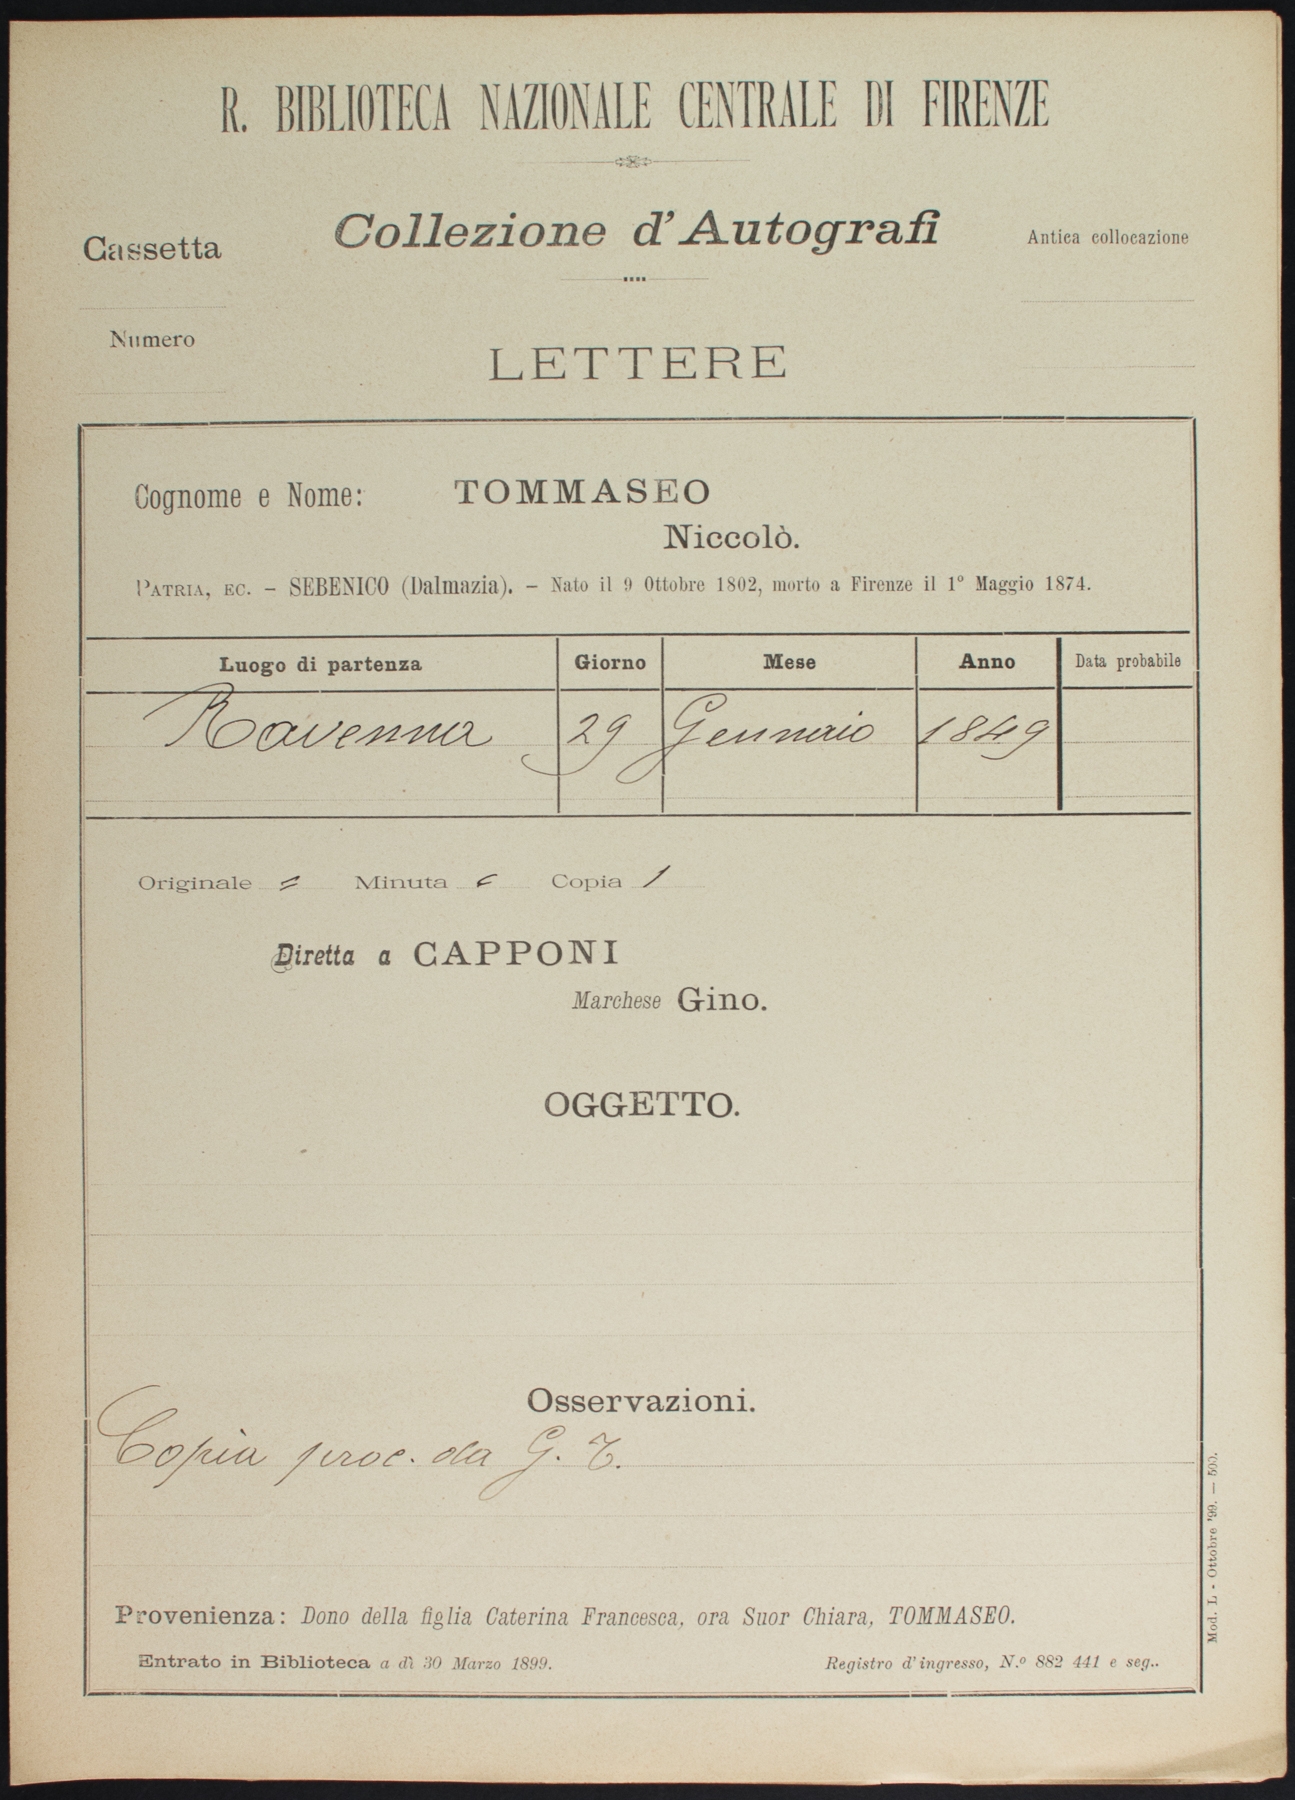 R. BIBLIOTECA NAZIONALE CENTRALE DI FIRENZE
Collezione d'Autografi
Cassetta
Antica collocazione
Numero
LETTERE
Cognome e Nome: TOMMASEO
Niccolò.
PATRIA, EC. – SEBENICO (Dalmazia). – Nato il 9 Ottobre 1802, morto a Firenze il 1º Maggio 1874.
Luogo di partenza Giorno Mese Anno Data probabile
Ravenna 29 Gennaio 1849
Originale = Minuta = Copia 1
Diretta a CAPPONI
Marchese Gino.
OGGETTO.
Osservazioni.
Copia proc. da G. T.
Provenienza: Dono della figlia Caterina Francesca, ora Suor Chiara, TOMMASEO.
Entrato in Biblioteca a dì 30 Marzo 1899. Registro d'ingresso, N.º 882 441 e seg..
Mod. L - Ottobre '99. — 500.